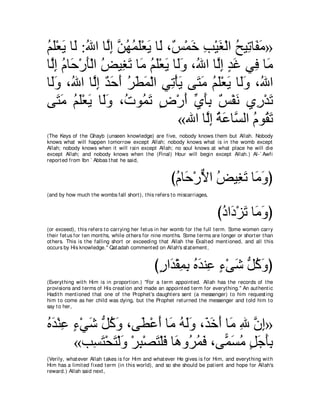 «مَفَاتِيحُ الْغَيْبِ خَمْسٌ، لَا يَعْلَمُهُنَّ إِلَّا اللهُ: لَا يَعْلَمُ
مَا فِي غَدٍ إِلَّا اللهُ، وَلَا يَعْلَمُ مَا تَغِيضُ الْأَرْحَامُ إِلَّا
اللهُ، وَلَا يَعْلَمُ مَتَى يَأْتِي الْمَطَرُ أَحَدٌ إِلَّا اللهُ، وَلَا
تَدْرِي نَفْسٌ بِأَيِّ أَرْضٍ تَمُوتُ، وَلَا يَعْلَمُ مَتَى
تَقُومُ السَّاعَةُ إِلَّا الله»
(The Keys of the Ghayb (unseen knowledge) are five, nobody knows them but Allah. Nobody
knows what will happen tomorrow except Allah; nobody knows what is in the womb except
Allah; nobody knows when it will rain except Allah; no soul knows at what place he will die
except Allah; and nobody knows when the (Final) Hour will begin except Allah.) Al-`Awfi
reported from Ibn `Abbas that he said,
(وَمَا تَغِيضُ الاٌّرْحَامُ)
(and by how much the wombs fall short), this refers to miscarriages,
(وَمَا تَزْدَادُ)
(or exceed), this refers to carrying her fetus in her womb for the full term. Some women carry
their fetus for ten months, while others for nine months. Some terms are longer or shorter than
others. This is the falling short or exceeding that Allah the Exalted mentioned, and all this
occurs by His knowledge." Qatadah commented on Allah's statement,
(وَكُلُّ شَىْءٍ عِندَهُ بِمِقْدَارٍ)
(Everything with Him is in proportion.) "For a term appointed. Allah has the records of the
provisions and terms of His creation and made an appointed term for everything." An authentic
Hadith mentioned that one of the Prophet's daughters sent (a messenger) to him requesting
him to come as her child was dying, but the Prophet returned the messenger and told him to
say to her,
«إِنَّ لِلهِ مَا أَخَذَ، وَلَهُ مَا أَعْطَى، وَكُلُّ شَيْءٍ عِنْدَهُ
بِأَجَلٍ مُسَمًّى، فَمُرُوهَا فَلْتَصْبِرْ وَلْتَحْتَسِب»
(Verily, whatever Allah takes is for Him and whatever He gives is for Him, and everything with
Him has a limited fixed term (in this world), and so she should be patient and hope for Allah's
reward.) Allah said next,